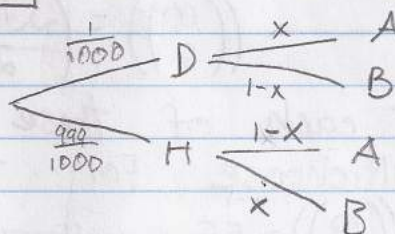 1/1000 D x A
1-x B
999/1000 H 1-x A
x B